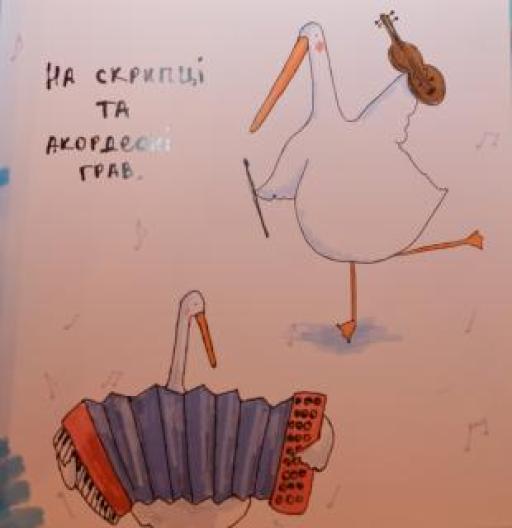 НА СКРИПЦІ
ТА
АКОРДЕОНІ
ГРАВ.